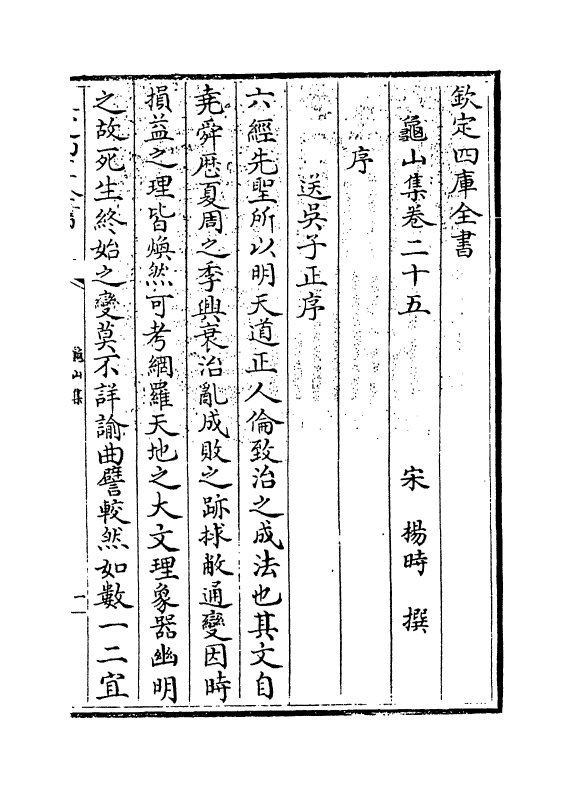 欽定四庫全書
龜山集卷二十五
宋 楊時 撰
序
送吳子正序
六經先聖所以明天道正人倫致治之成法也其文自
堯舜歴夏周之季興衰治亂成敗之跡捄敝通變因時
損益之理皆煥然可考網羅天地之大文理象器幽明
之故死生終始之變莫不詳諭曲譬較然如數一二宜
龜山集
一